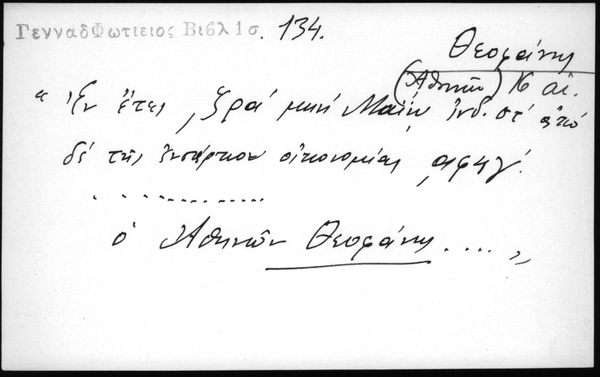 ΓενναδΦωτιειος Βιβλ 1σ. 134.
Θεοφάνης
(Ἀθηνῶν) 16 αἰ.
"Ἐν ἔτει ͵ζρά μηνί Μαΐῳ ἰνδ. στ' ἀπό
δέ τῆς ἐνσάρκου οἰκονομίας ͵αφϟγ'.
. . . . . . . . . . . . .
ὁ Ἀθηνῶν Θεοφάνης . . . . "